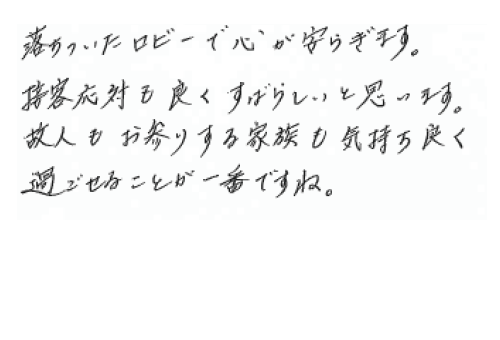 落ちついたロビーで心が安らぎます。
接客応対も良くすばらしいと思います。
故人もお参りする家族も気持ち良く
過ごせることが一番ですね。